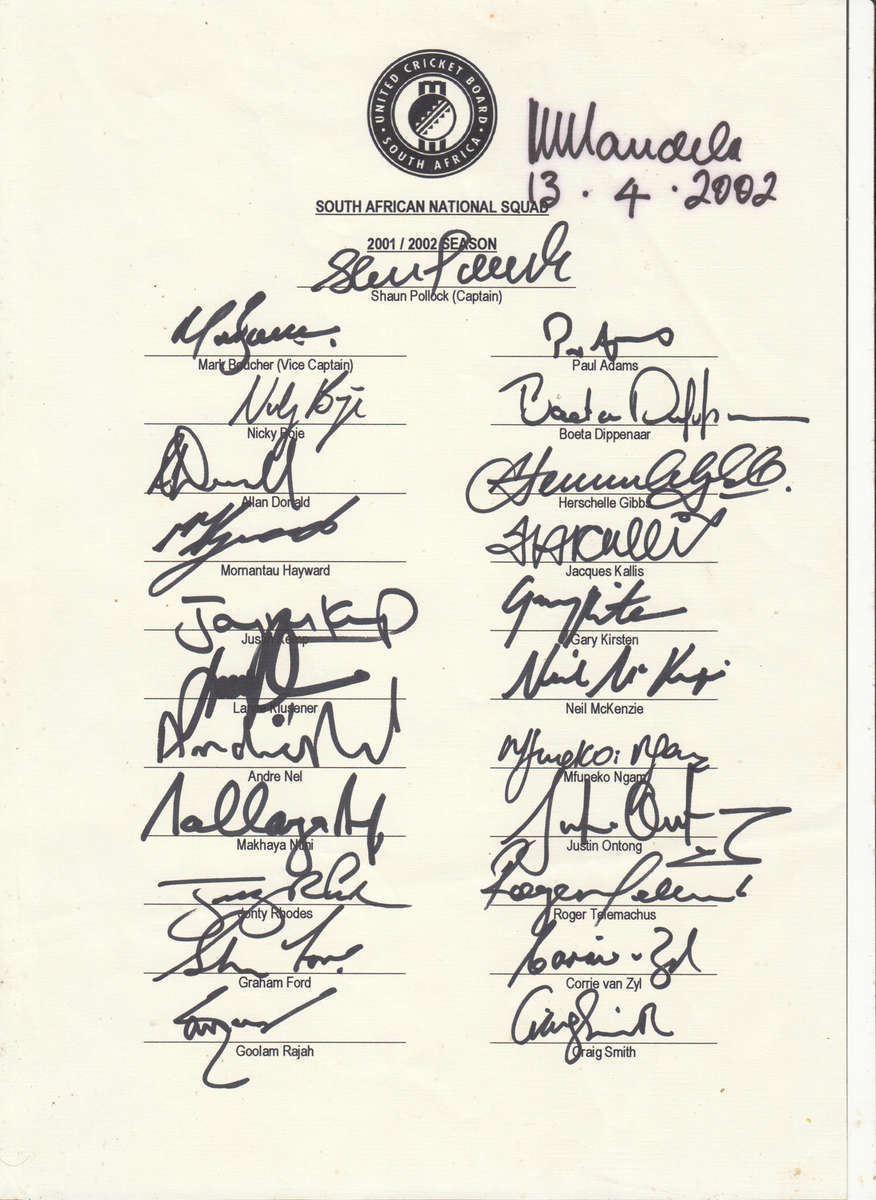 UNITED CRICKET BOARD
SOUTH AFRICA
NMandela
13.4.2002
SOUTH AFRICAN NATIONAL SQUAD
2001 / 2002 SEASON
Shaun Pollock (Captain)
Mark Boucher (Vice Captain)
Paul Adams
Nicky Boje
Boeta Dippenaar
Nicky Boje
Boeta Dippenaar
Allan Donald
Herschelle Gibbs
Herschelle Gibbs
Mornantau Hayward
Jacques Kallis
Justin Kemp
Gary Kirsten
Gary Kirsten
Lance Klusener
Neil McKenzie
Andre Nel
Mfuneko Ngam
Andre Nel
Mfuneko Ngam
Makhaya Ntini
Justin Ontong
Roger Telemachus
Jonty Rhodes
Roger Telemachus
Graham Ford
Corrie van Zyl
Craig Smith
Goolam Rajah
Craig Smith